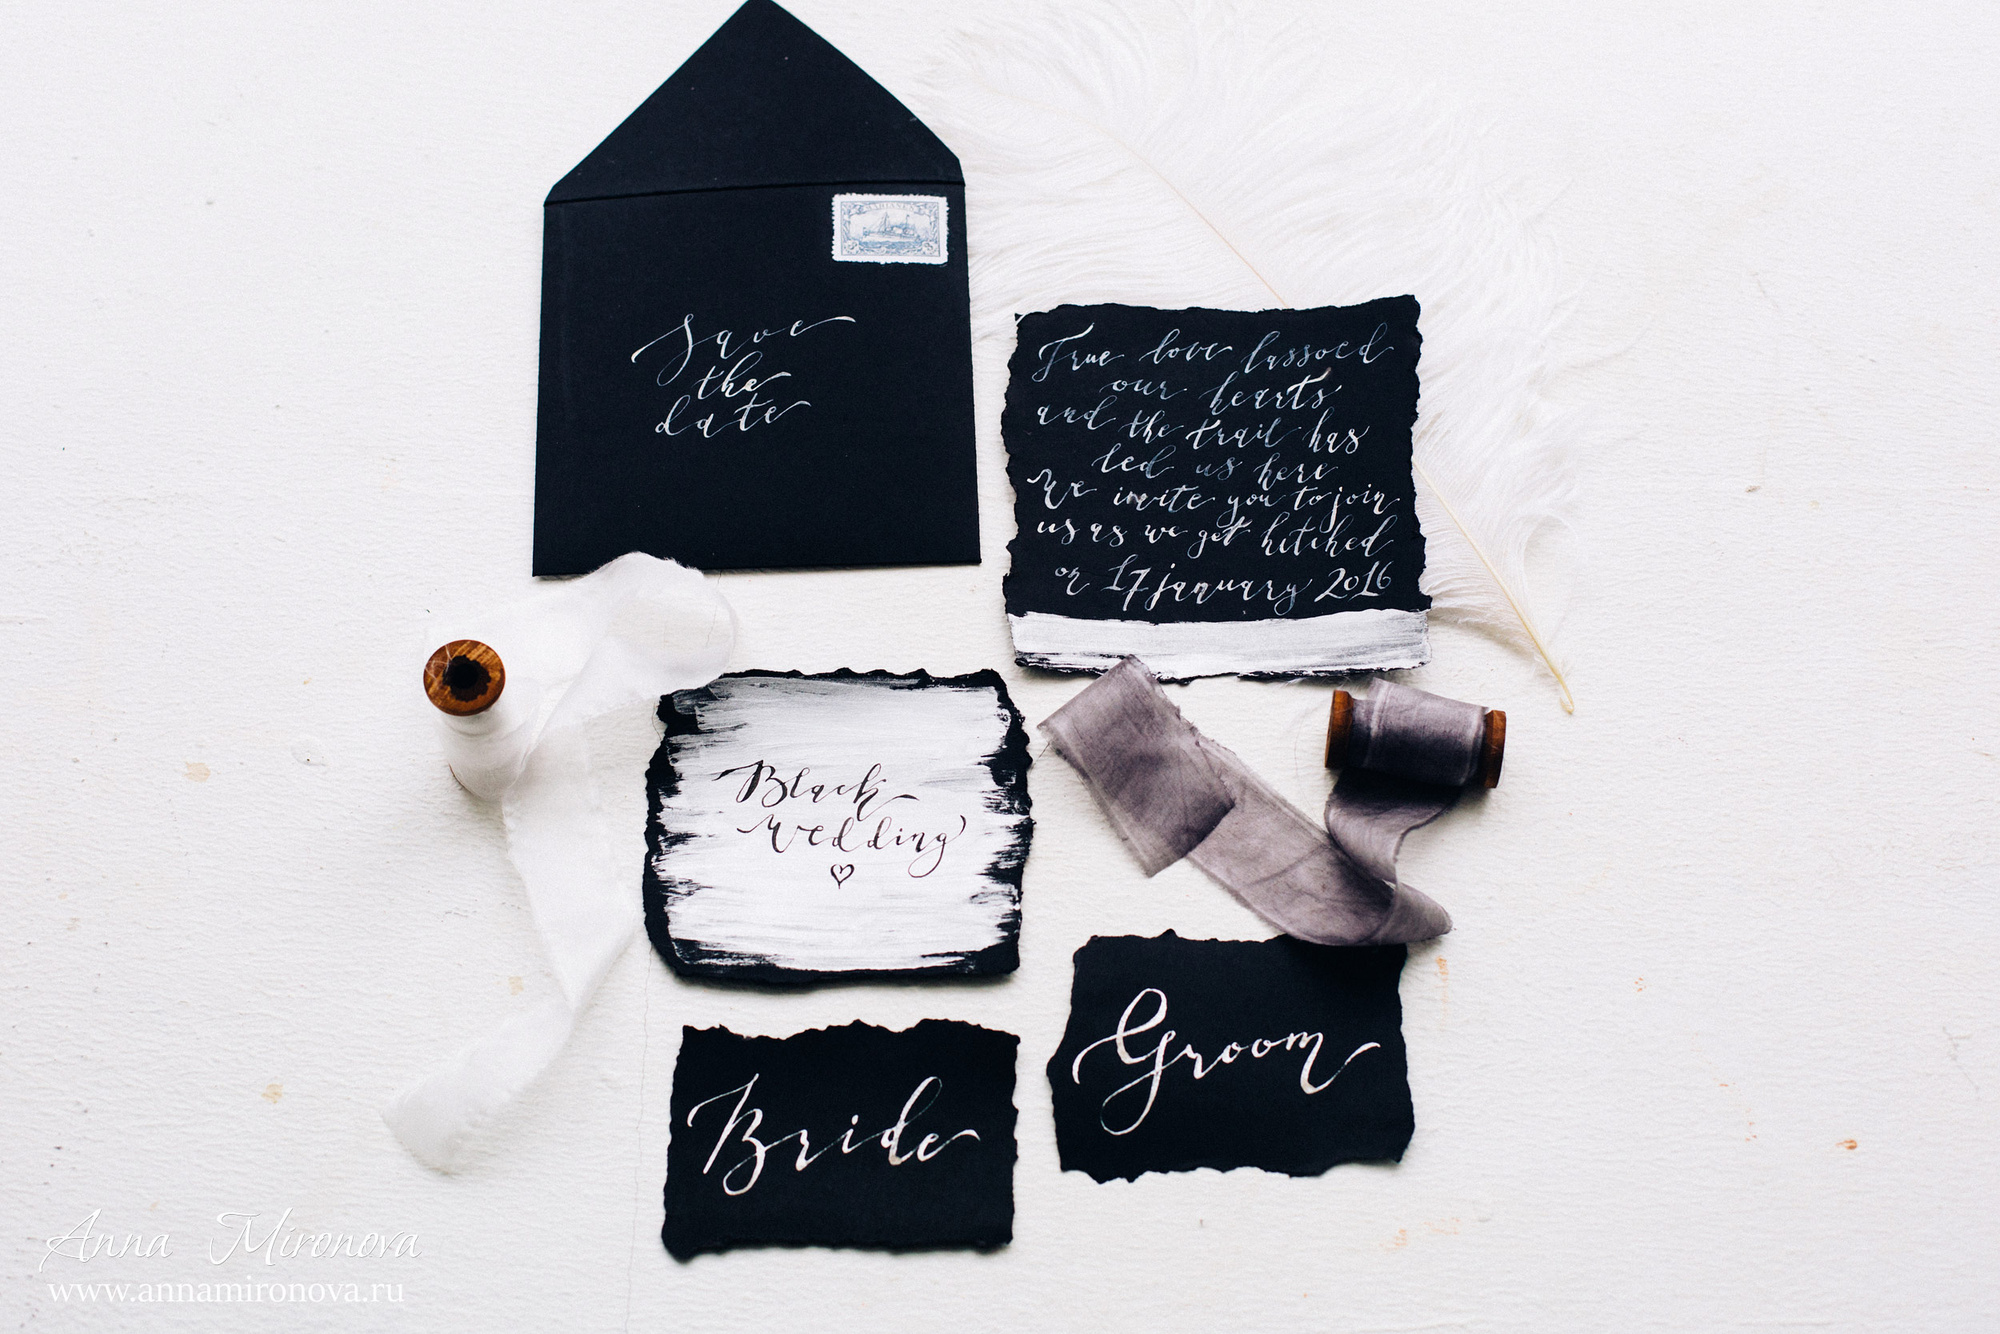 Save
the
date
True love lassoed
our hearts
and the trail has
led us here
We invite you to join
us as we get hitched
on 17 january 2016
Black
Wedding
Bride
Groom
Anna Mironova
www.annamironova.ru